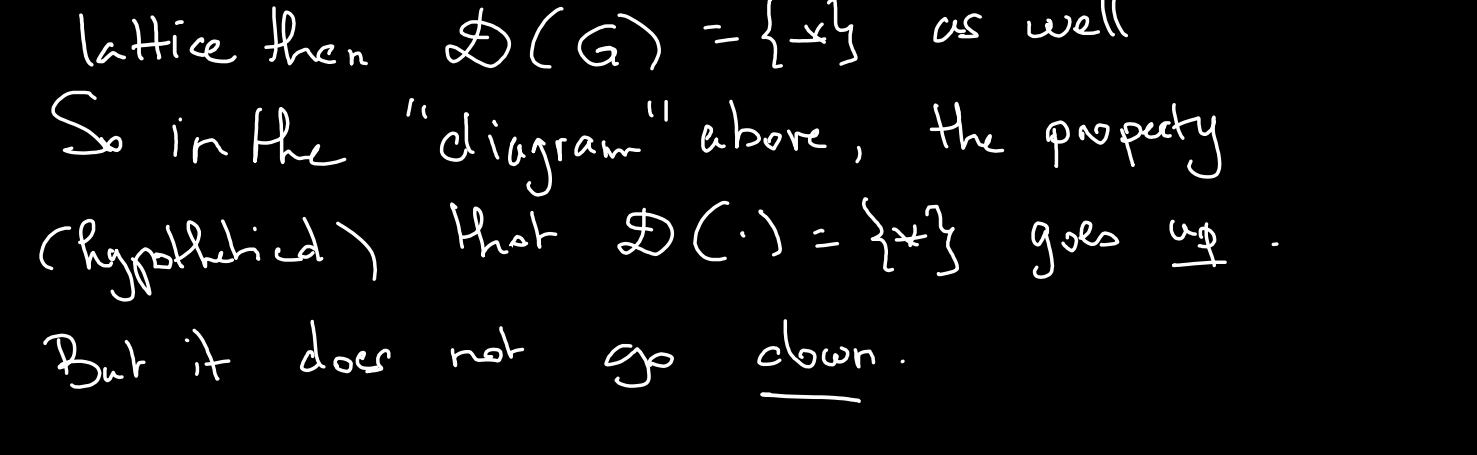 lattice then 𝒟(G) = {*} as well
So in the "diagram" above, the property
(hypothetical) that 𝒟(·) = {*} goes up.
But it does not go down.